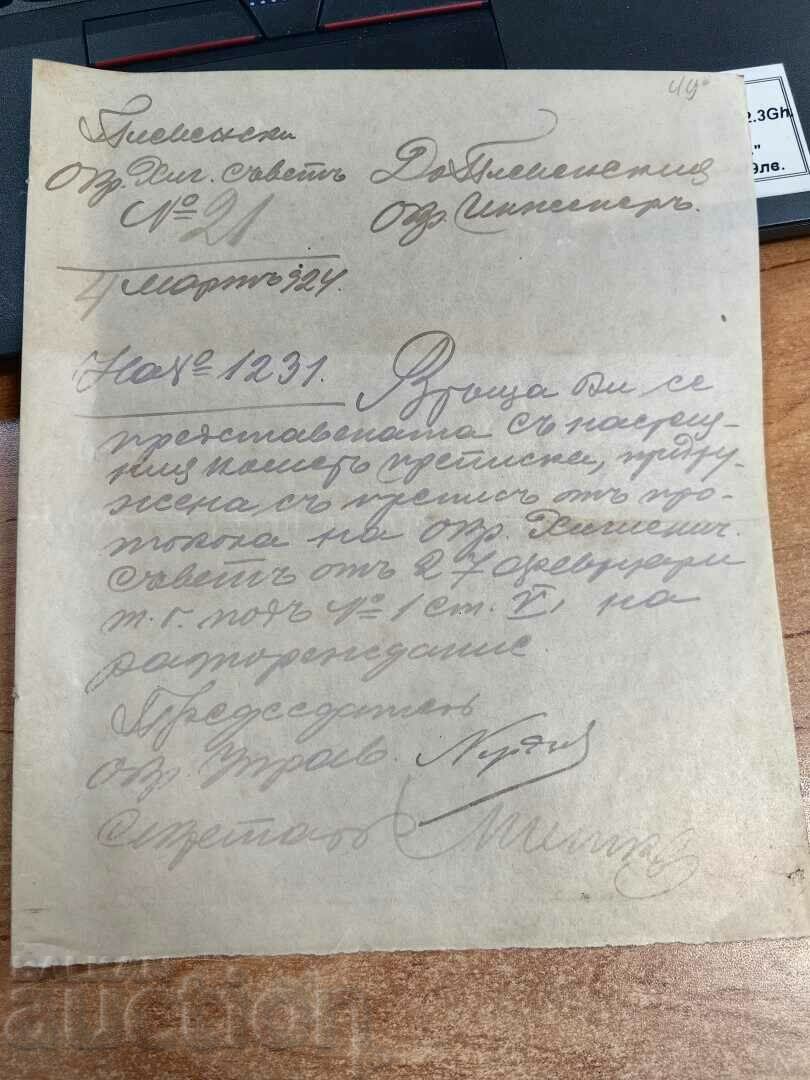 49
Плевенски
Окр. Хиг. съветъ
№ 21
4 Мартъ 924.
До Плевенския
Окр. Инженеръ.
На № 1231.
Връща Ви се
представената съ настоя-
щия преписка, придру-
жена съ преписъ отъ про-
токола на Окр. Хигиенич.
съветъ отъ 27 февруари
т. г. подъ № 1 ст. V, на
разпореждание.
Председатель
Окр.
Секретарь
2.3Gh
9лв.
auction